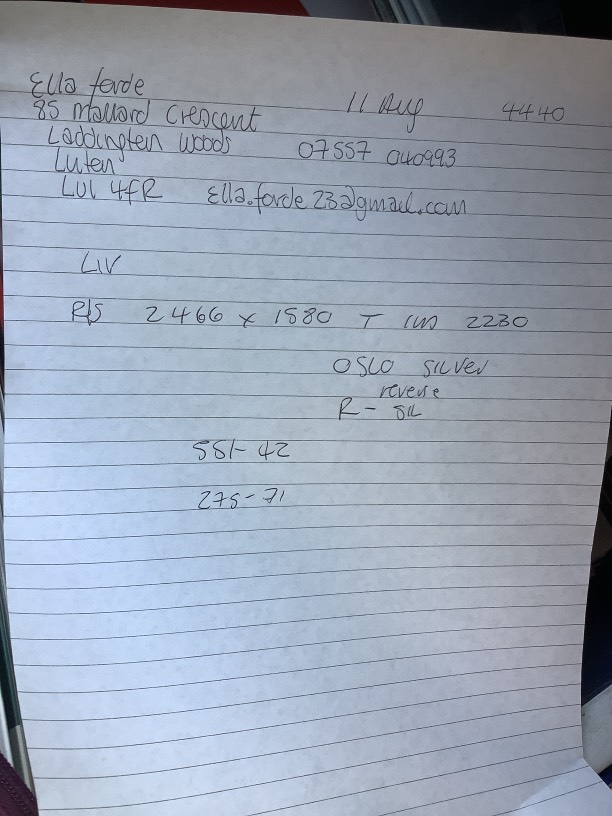 Ella forde
85 Mallard Crescent 11 Aug 4440
Loddington Woods 07557 040993
Luton
LU1 4FR Ella.forde23@gmail.com
LIV
R/S 2466 x 1580 T 2230
OSLO SILVER
reverse
R - SIL
551-42
275-71